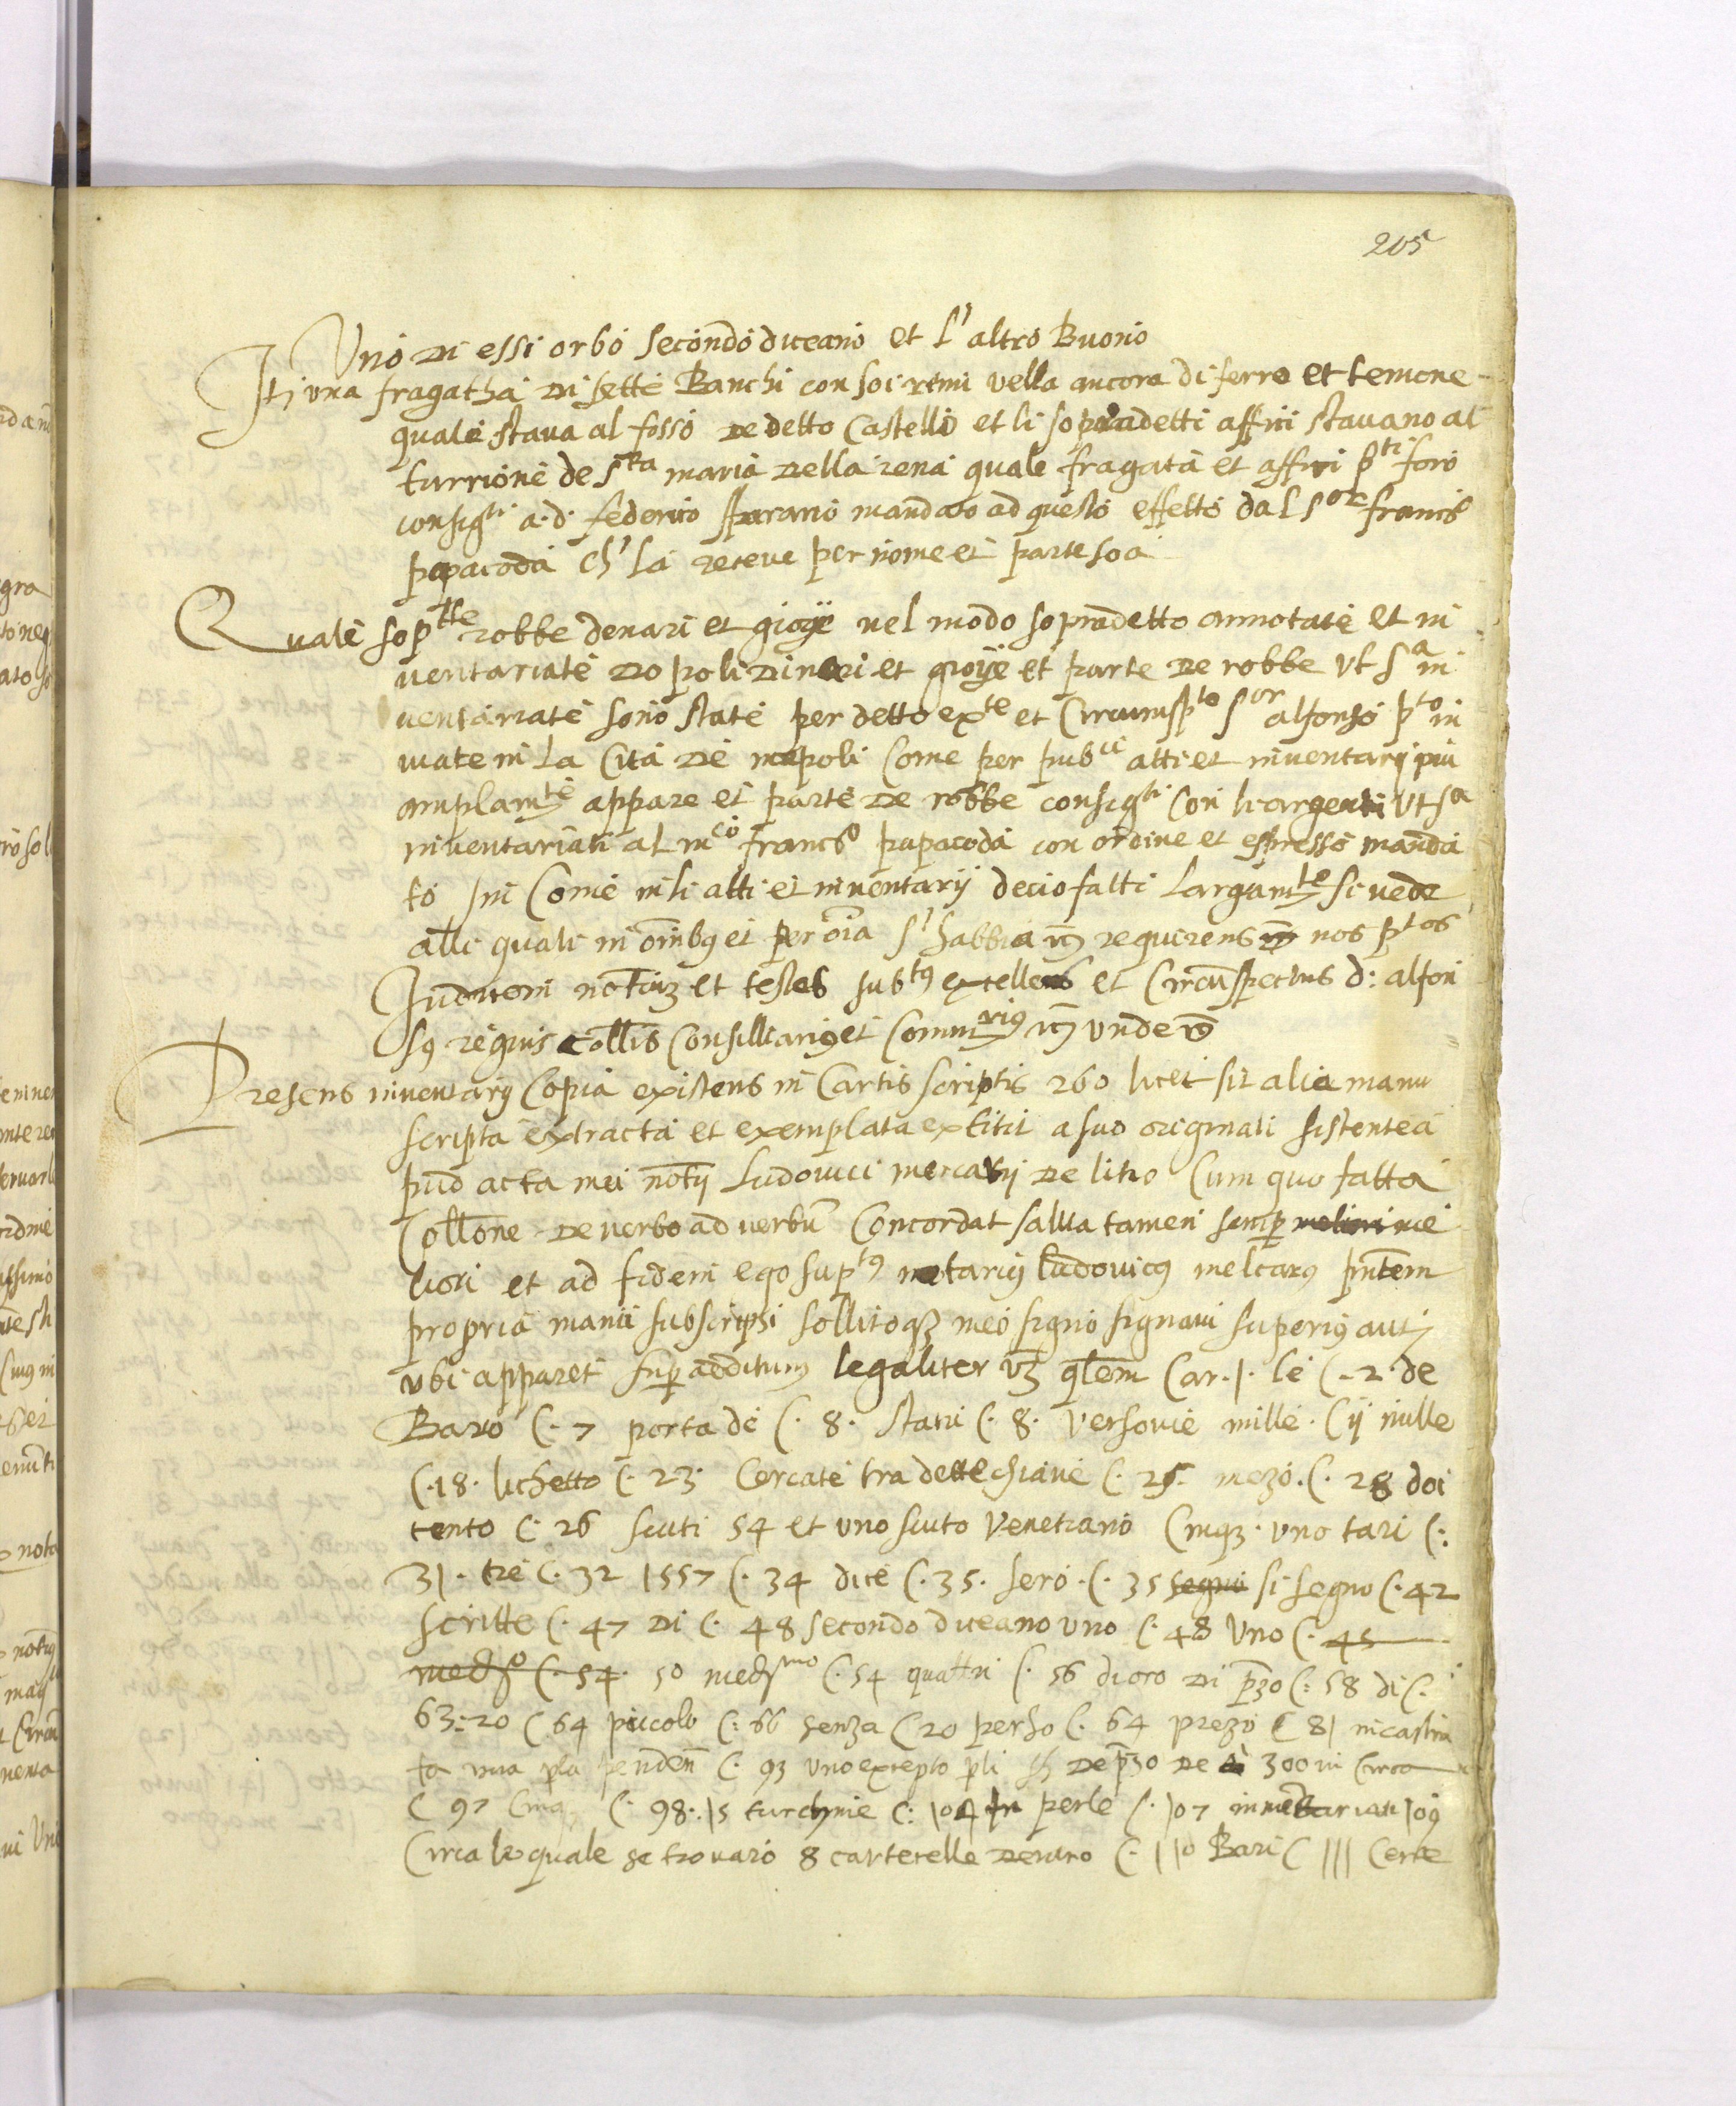 205
Uno di essi orbo secondo diceano et l'altro Buono
Itē una fragatha di sette Banchi con soi remi vella ancora di ferro et temone
quale stava al fosso de detto Castello et li sopradetti affiti stavano al
turrione de Sta maria della rena quale fragata et affiti pti foro
consigti a. d. federico sfurano mandato ad questo effetto dal Sor francō
papacoda ch' la receve per nome et parte soa
Quale soptte robbe denari et gioye nel modo sopradetto annotate et in
ventariate do poli dinari et gioye et parte de robbe ut sa in
ventariate sono state per detto exte et Circumspto Sor alfonso pto in
viate in la Cita de napoli Come per pubci atti et inventarij piu
amplamte appare et parte de robbe consigti Con li argenti ut sa
inventariati al mco francō papacoda con ordine et espresso manda
to Ini Come in li atti et inventarij de cio fatti Largamte si vede
alli quali in oīnbus et per oīa s' habbia requirens nos ptos
Iudicem notariū et testes subtus excellens et Circūspectus d: alfon
sus reguis collis Consiliarius et Commrius unde
Presens inventarij Copia existens in Cartis scriptis 260 licet sit alia manu
scripta extracta et exemplata extitit a suo originali sistente a
pud acta mei notīj Ludovici mercarij de litio Cum quo fatta
Collone de verbo ad verbū Concordat salva tamen semp melini me
liori et ad fidem ego suptus notarius ludovicus melcarus pntem
propria manu subscripsi sollitoqȝ meo signo signavi superius aut
ubi apparet supadditum legaliter vȝ qlem Car. 1. le C. 2. de
Baro C. 7 porta de C. 8. stani C. 8. Versovie mille. C ij nulle
C. 18. lichetto C. 23. Cercate tra dette chiave C. 25. mezo. C. 28 doi
cento C. 26 scuti 54 et uno scuto Venetiano Cinqȝ. uno tari C:
31. tre C. 32 1557 C. 34 dice C. 35. sero. C. 35 segno si segno C. 42
scritte C. 47 di C. 48 secondo diceano uno C. 48 Uno C. 45
medso C. 54. 50 medsmo C. 54 quattri C. 56 di oro di pȝo C: 58 di C.
63: 20 C 64 piccolo C: 66 senza C 20 perso C. 64 prezo C 81 incastra
ta una pla penden C. 93 uno excepto pli de pȝo de 300 in Circa
C 97 Cinq C. 98. 15 turchine C: 104 perle C. 107 inventariati 109
Circa le quale se trovaro 8 cartecelle dentro C. 110 Bari C 111 Certe